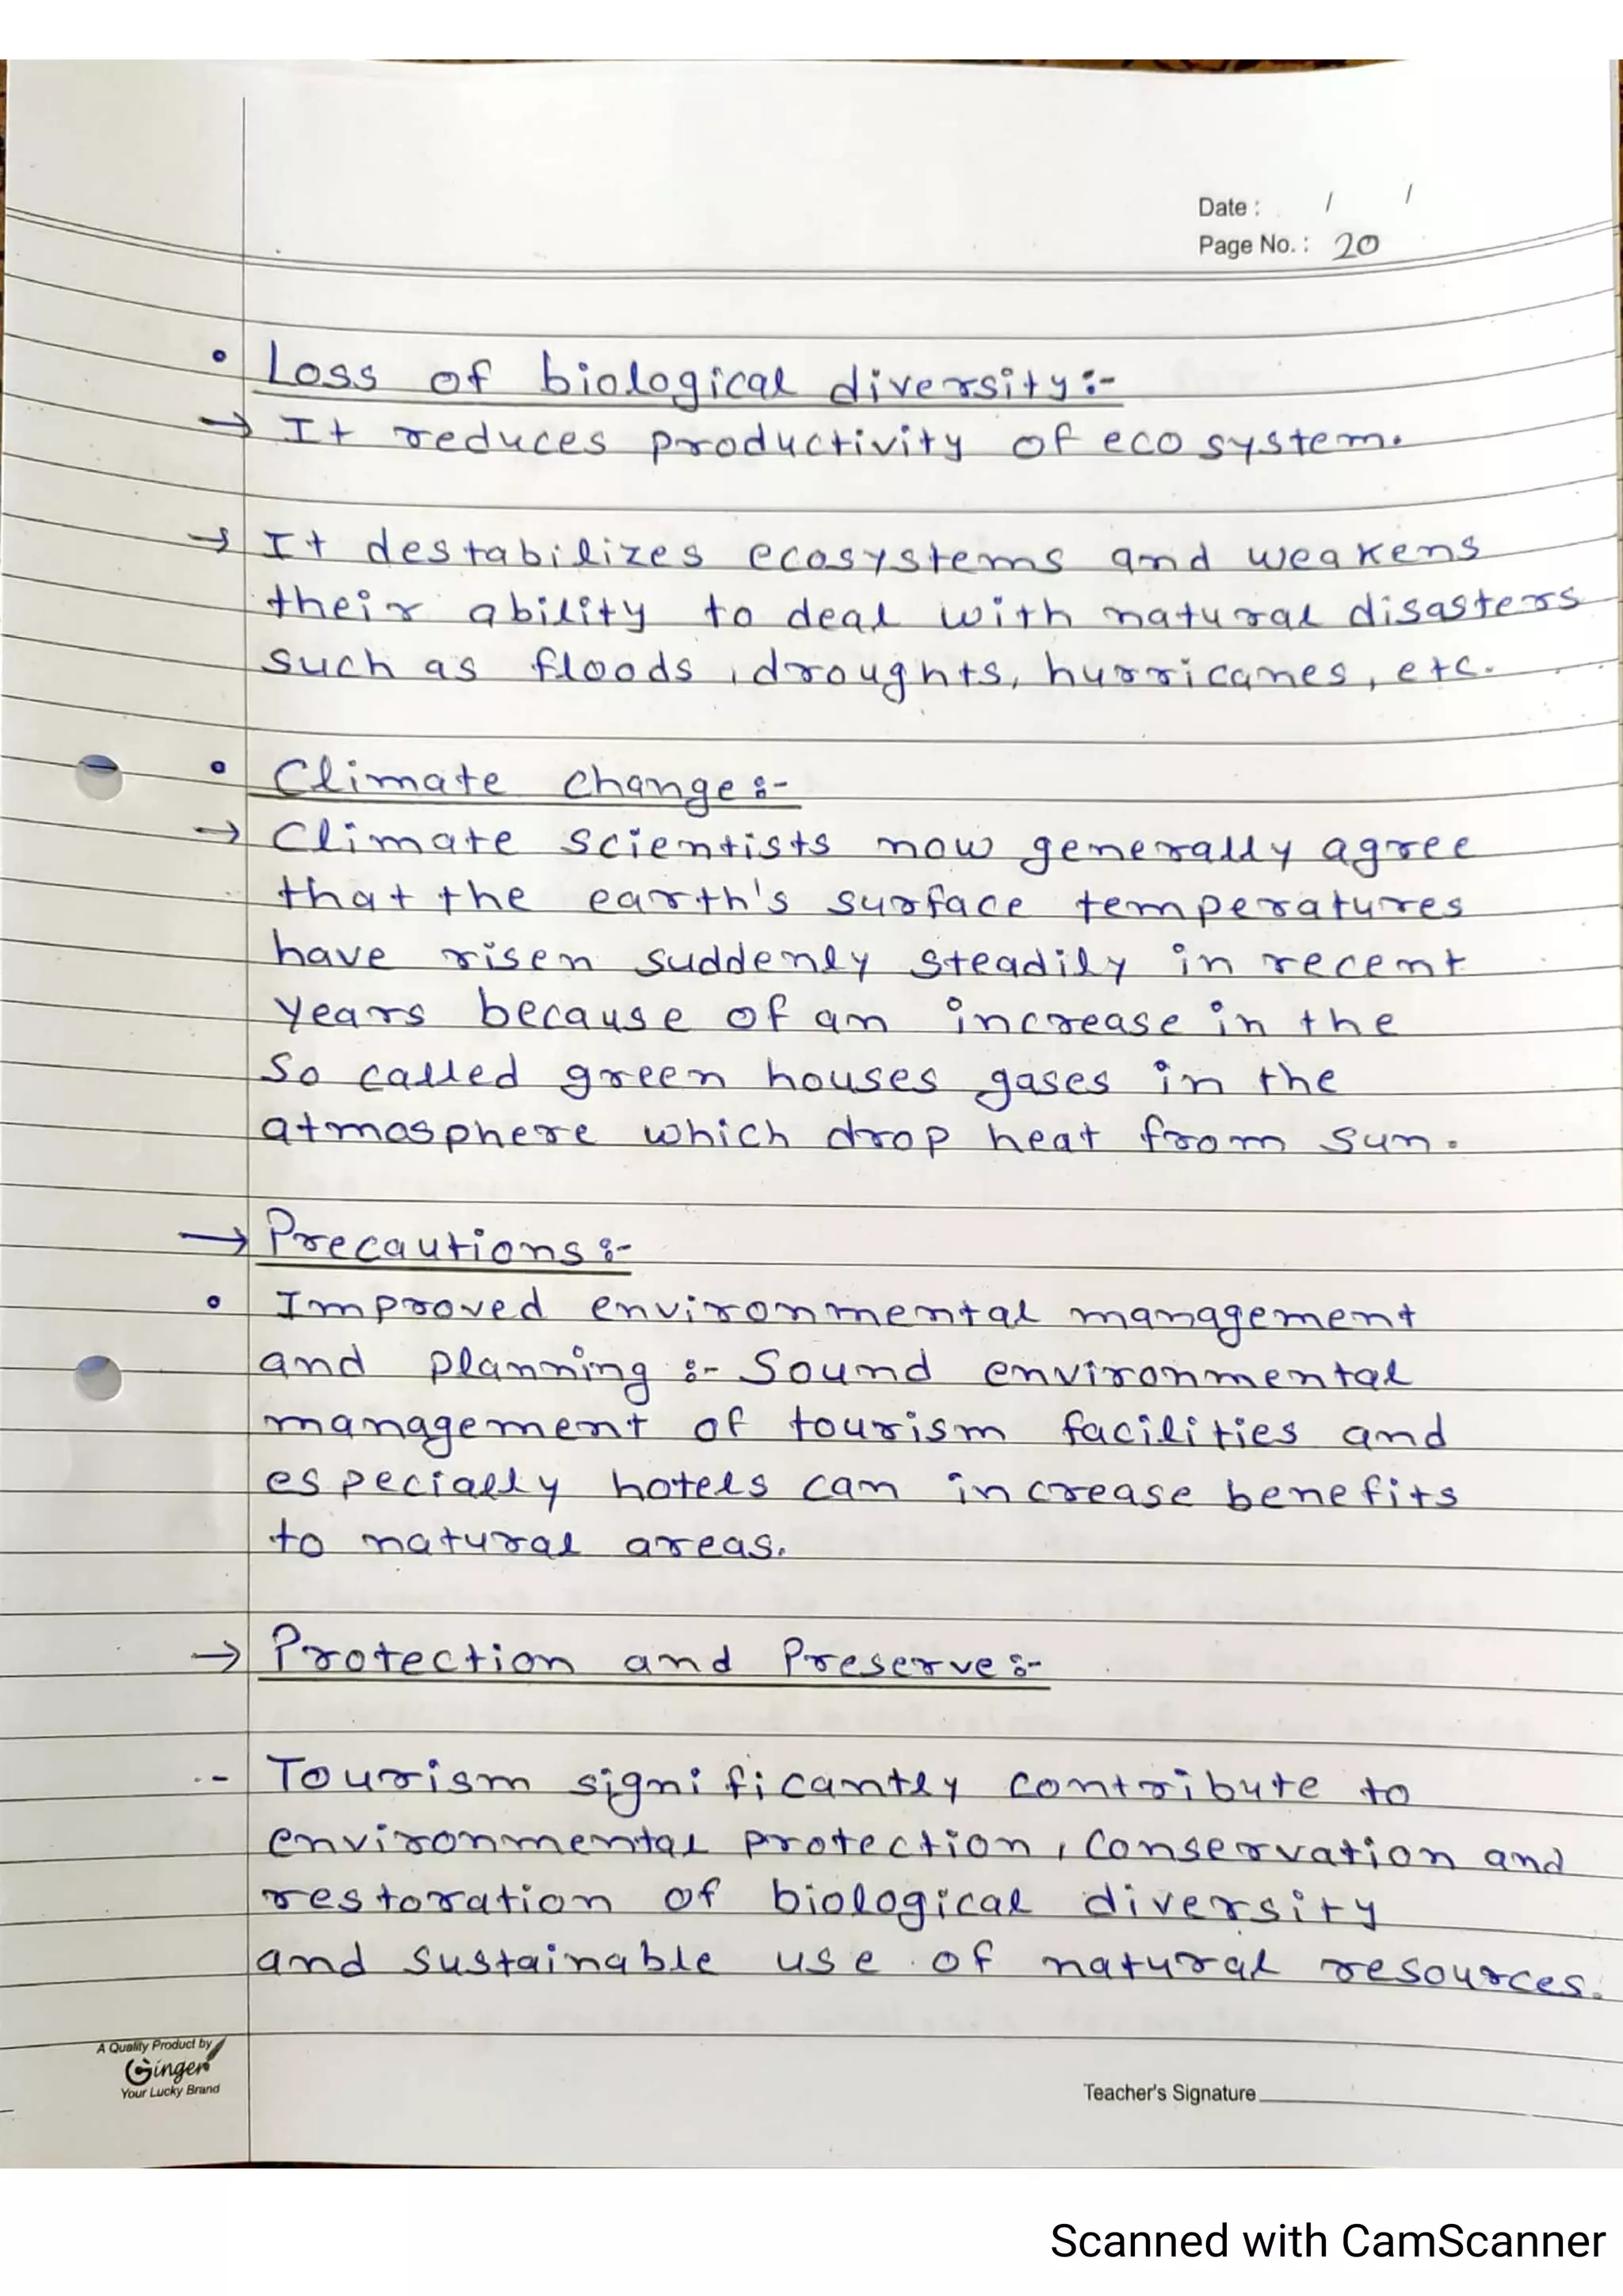 Date : / /
Page No. : 20
• Loss of biological diversity:-
→ It reduces productivity of eco system.
→ It destabilizes ecosystems and weakens
their ability to deal with natural disasters
such as floods, droughts, hurricanes, etc.
• Climate change:-
→ Climate scientists now generally agree
that the earth's surface temperatures
have risen suddenly steadily in recent
years because of an increase in the
So called green houses gases in the
atmosphere which drop heat from sun.
→ Precautions:-
• Improved environmental management
and planning :- Sound environmental
management of tourism facilities and
especially hotels can increase benefits
to natural areas.
→ Protection and Preserve:-
.- Tourism significantly contribute to
environmental protection, conservation and
restoration of biological diversity
and sustainable use of natural resources.
A Quality Product by
Ginger
Your Lucky Brand
Teacher's Signature
Scanned with CamScanner